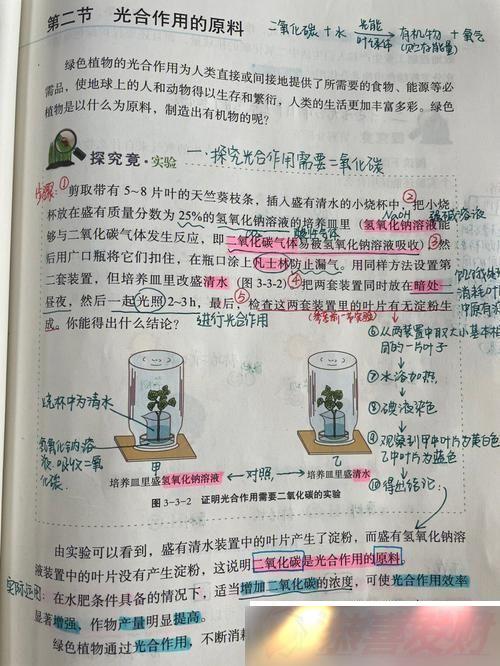 第二节 光合作用的原料
二氧化碳+水 光能 叶绿体 有机物+氧气
(贮存能量)
绿色植物的光合作用为人类直接或间接地提供了所需要的食物、能源等必
需品,使地球上的人和动物得以生存和繁衍,人类的生活更加丰富多彩。绿色
植物是以什么为原料,制造出有机物的呢?
探究竟·实验 一.探究光合作用需要二氧化碳
步骤:①剪取带有5~8片叶的天竺葵枝条,插入盛有清水的小烧杯中,②把小烧
杯放在盛有质量分数为25%的氢氧化钠溶液的培养皿里(氢氧化钠溶液能
NaOH 强碱溶液
够与二氧化碳气体发生反应,即二氧化碳气体易被氢氧化钠溶液吸收)③然
后用广口瓶将它们扣住,在瓶口涂上凡士林防止漏气。用同样方法设置第
二套装置,但培养皿里改盛清水(图3-3-2)④把两套装置同时放在暗处一
昼夜,然后一起光照2~3h,最后⑤检查这两套装置里的叶片有无淀粉生
成。你能得出什么结论?
进行光合作用
⑥从两装置中取大小基本相
同的一片叶子
⑦水浴加热
⑧碘液染色
⑨观察到甲中叶片为黄白色
乙中叶片为蓝色
⑩得出结论:
烧杯中为清水
氢氧化钠溶
液:吸收二氧
化碳
甲
乙
培养皿里盛氢氧化钠溶液 ←对照→ 培养皿里盛清水
图 3-3-2 证明光合作用需要二氧化碳的实验
由实验可以看到,盛有清水装置中的叶片产生了淀粉,而盛有氢氧化钠溶
液装置中的叶片没有产生淀粉,这说明二氧化碳是光合作用的原料。
实际运用:在水肥条件具备的情况下,适当增加二氧化碳的浓度,可使光合作用效率
显著增强,作物产量明显提高。
绿色植物通过光合作用,不断消耗